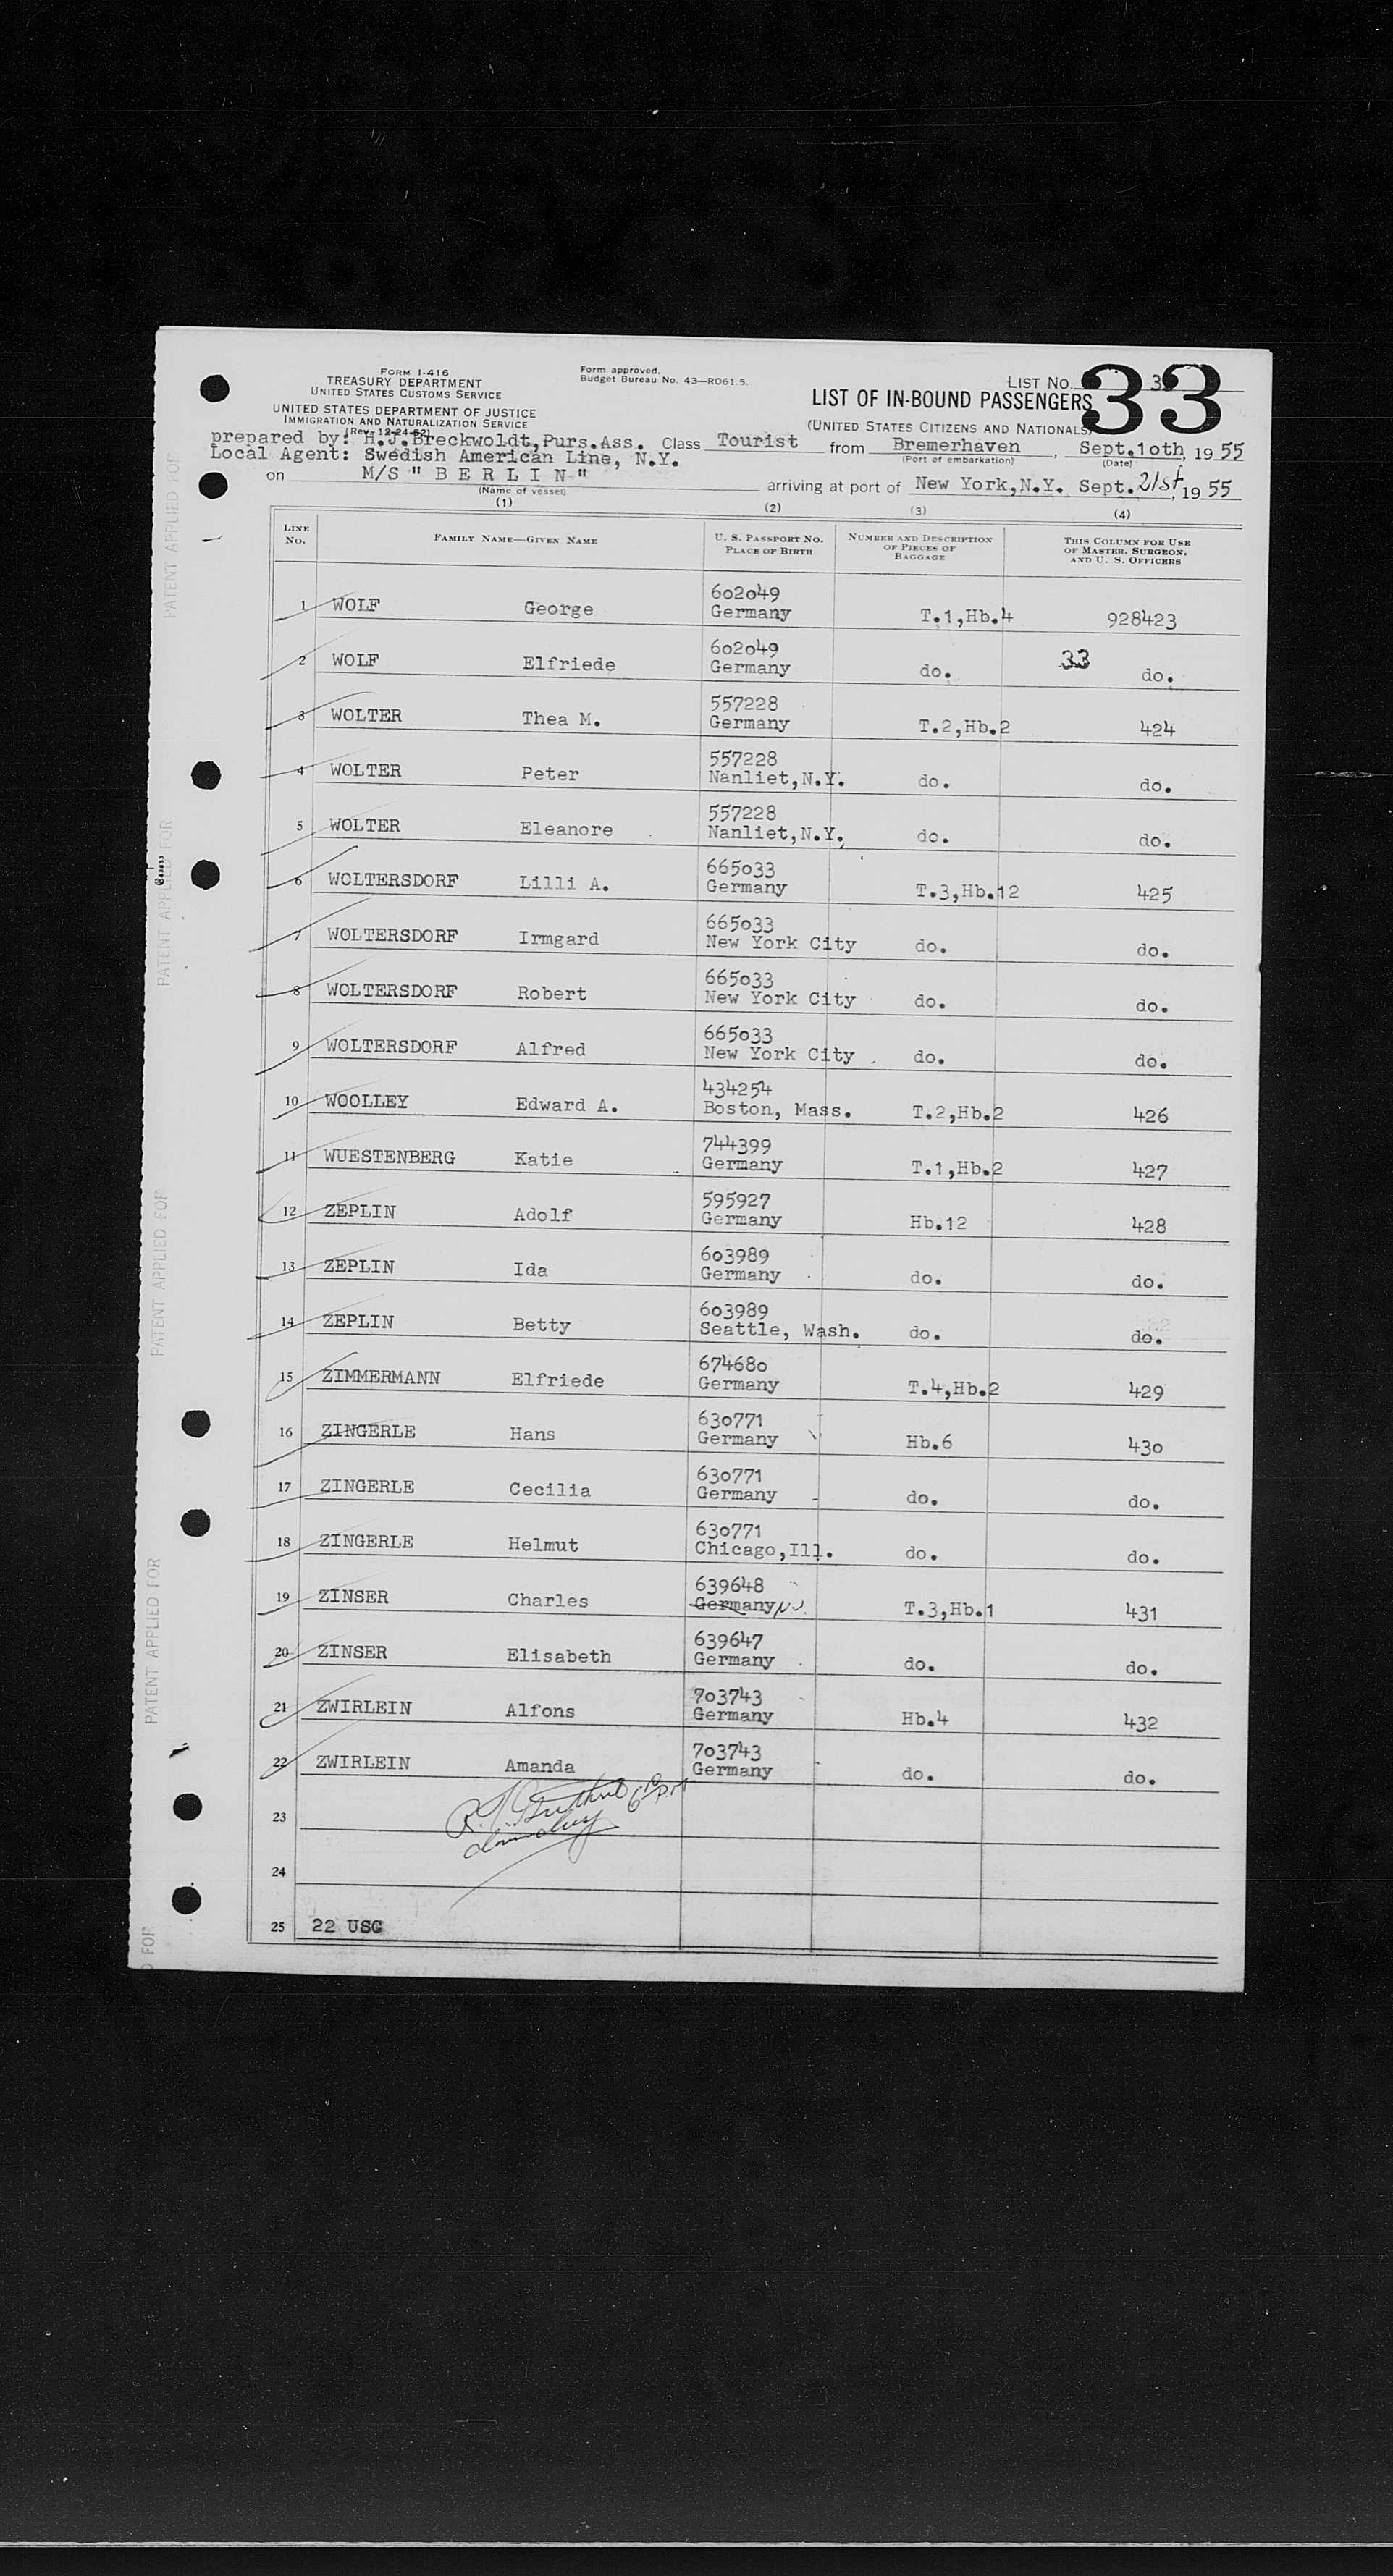 FORM I-416
TREASURY DEPARTMENT
UNITED STATES CUSTOMS SERVICE
UNITED STATES DEPARTMENT OF JUSTICE
IMMIGRATION AND NATURALIZATION SERVICE
(Rev. 12-24-52)
Form approved.
Budget Bureau No. 43—RO61.5.
LIST No. 33
LIST OF IN-BOUND PASSENGERS
(UNITED STATES CITIZENS AND NATIONALS)
prepared by: H.J.Breckwoldt,Purs.Ass. Class Tourist from Bremerhaven, Sept.10th, 1955
(Port of embarkation) (Date)
Local Agent: Swedish American Line, N.Y.
on M/S " B E R L I N " arriving at port of New York,N.Y. Sept.21st, 1955
(Name of vessel)
(1) (2) (3) (4)
LINE No. FAMILY NAME—GIVEN NAME U. S. PASSPORT No. PLACE OF BIRTH NUMBER AND DESCRIPTION OF PIECES OF BAGGAGE THIS COLUMN FOR USE OF MASTER, SURGEON, AND U. S. OFFICERS
602049
1 WOLF George Germany T.1,Hb.4 928423
602049
2 WOLF Elfriede Germany do. 33 do.
557228
3 WOLTER Thea M. Germany T.2,Hb.2 424
557228
4 WOLTER Peter Nanliet,N.Y. do. do.
557228
5 WOLTER Eleanore Nanliet,N.Y. do. do.
665033
6 WOLTERSDORF Lilli A. Germany T.3,Hb.12 425
665033
7 WOLTERSDORF Irmgard New York City do. do.
665033
8 WOLTERSDORF Robert New York City do. do.
665033
9 WOLTERSDORF Alfred New York City do. do.
434254
10 WOOLLEY Edward A. Boston, Mass. T.2,Hb.2 426
744399
11 WUESTENBERG Katie Germany T.1,Hb.2 427
595927
12 ZEPLIN Adolf Germany Hb.12 428
603989
13 ZEPLIN Ida Germany do. do.
603989
14 ZEPLIN Betty Seattle, Wash. do. do.
674680
15 ZIMMERMANN Elfriede Germany T.4,Hb.2 429
630771
16 ZINGERLE Hans Germany Hb.6 430
630771
17 ZINGERLE Cecilia Germany do. do.
630771
18 ZINGERLE Helmut Chicago,Ill. do. do.
639648
19 ZINSER Charles Germany T.3,Hb.1 431
639647
20 ZINSER Elisabeth Germany do. do.
703743
21 ZWIRLEIN Alfons Germany Hb.4 432
703743
22 ZWIRLEIN Amanda Germany do. do.
23
24
25 22 USC
PATENT APPLIED FOR
PATENT APPLIED FOR
PATENT APPLIED FOR
PATENT APPLIED FOR